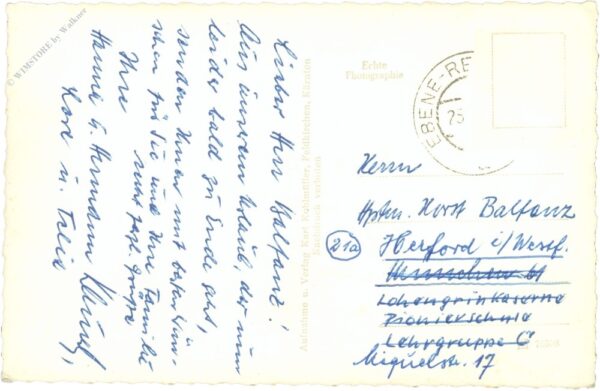 © WIMSTORE by Walkner
Lieber Herr Balfanz!
Aus unserem Urlaub, der nun
leider bald zu Ende geht,
senden Ihnen mit besten Wün-
schen für Sie und Ihre Familie
recht herzl. Grüße
Ihre
Hanne u. Hermann
Lore u.
Aufnahme u. Verlag Karl Feldkirchen, Kärnten
Nachdruck verboten
Echte
Photographie
EBENE-RE
Herrn
Hptm. Horst Balfanz
21a Herford i/Westf.
München 61
Lohengrinkaserne
Pionierschule
Lehrgruppe C
Miquelstr. 17